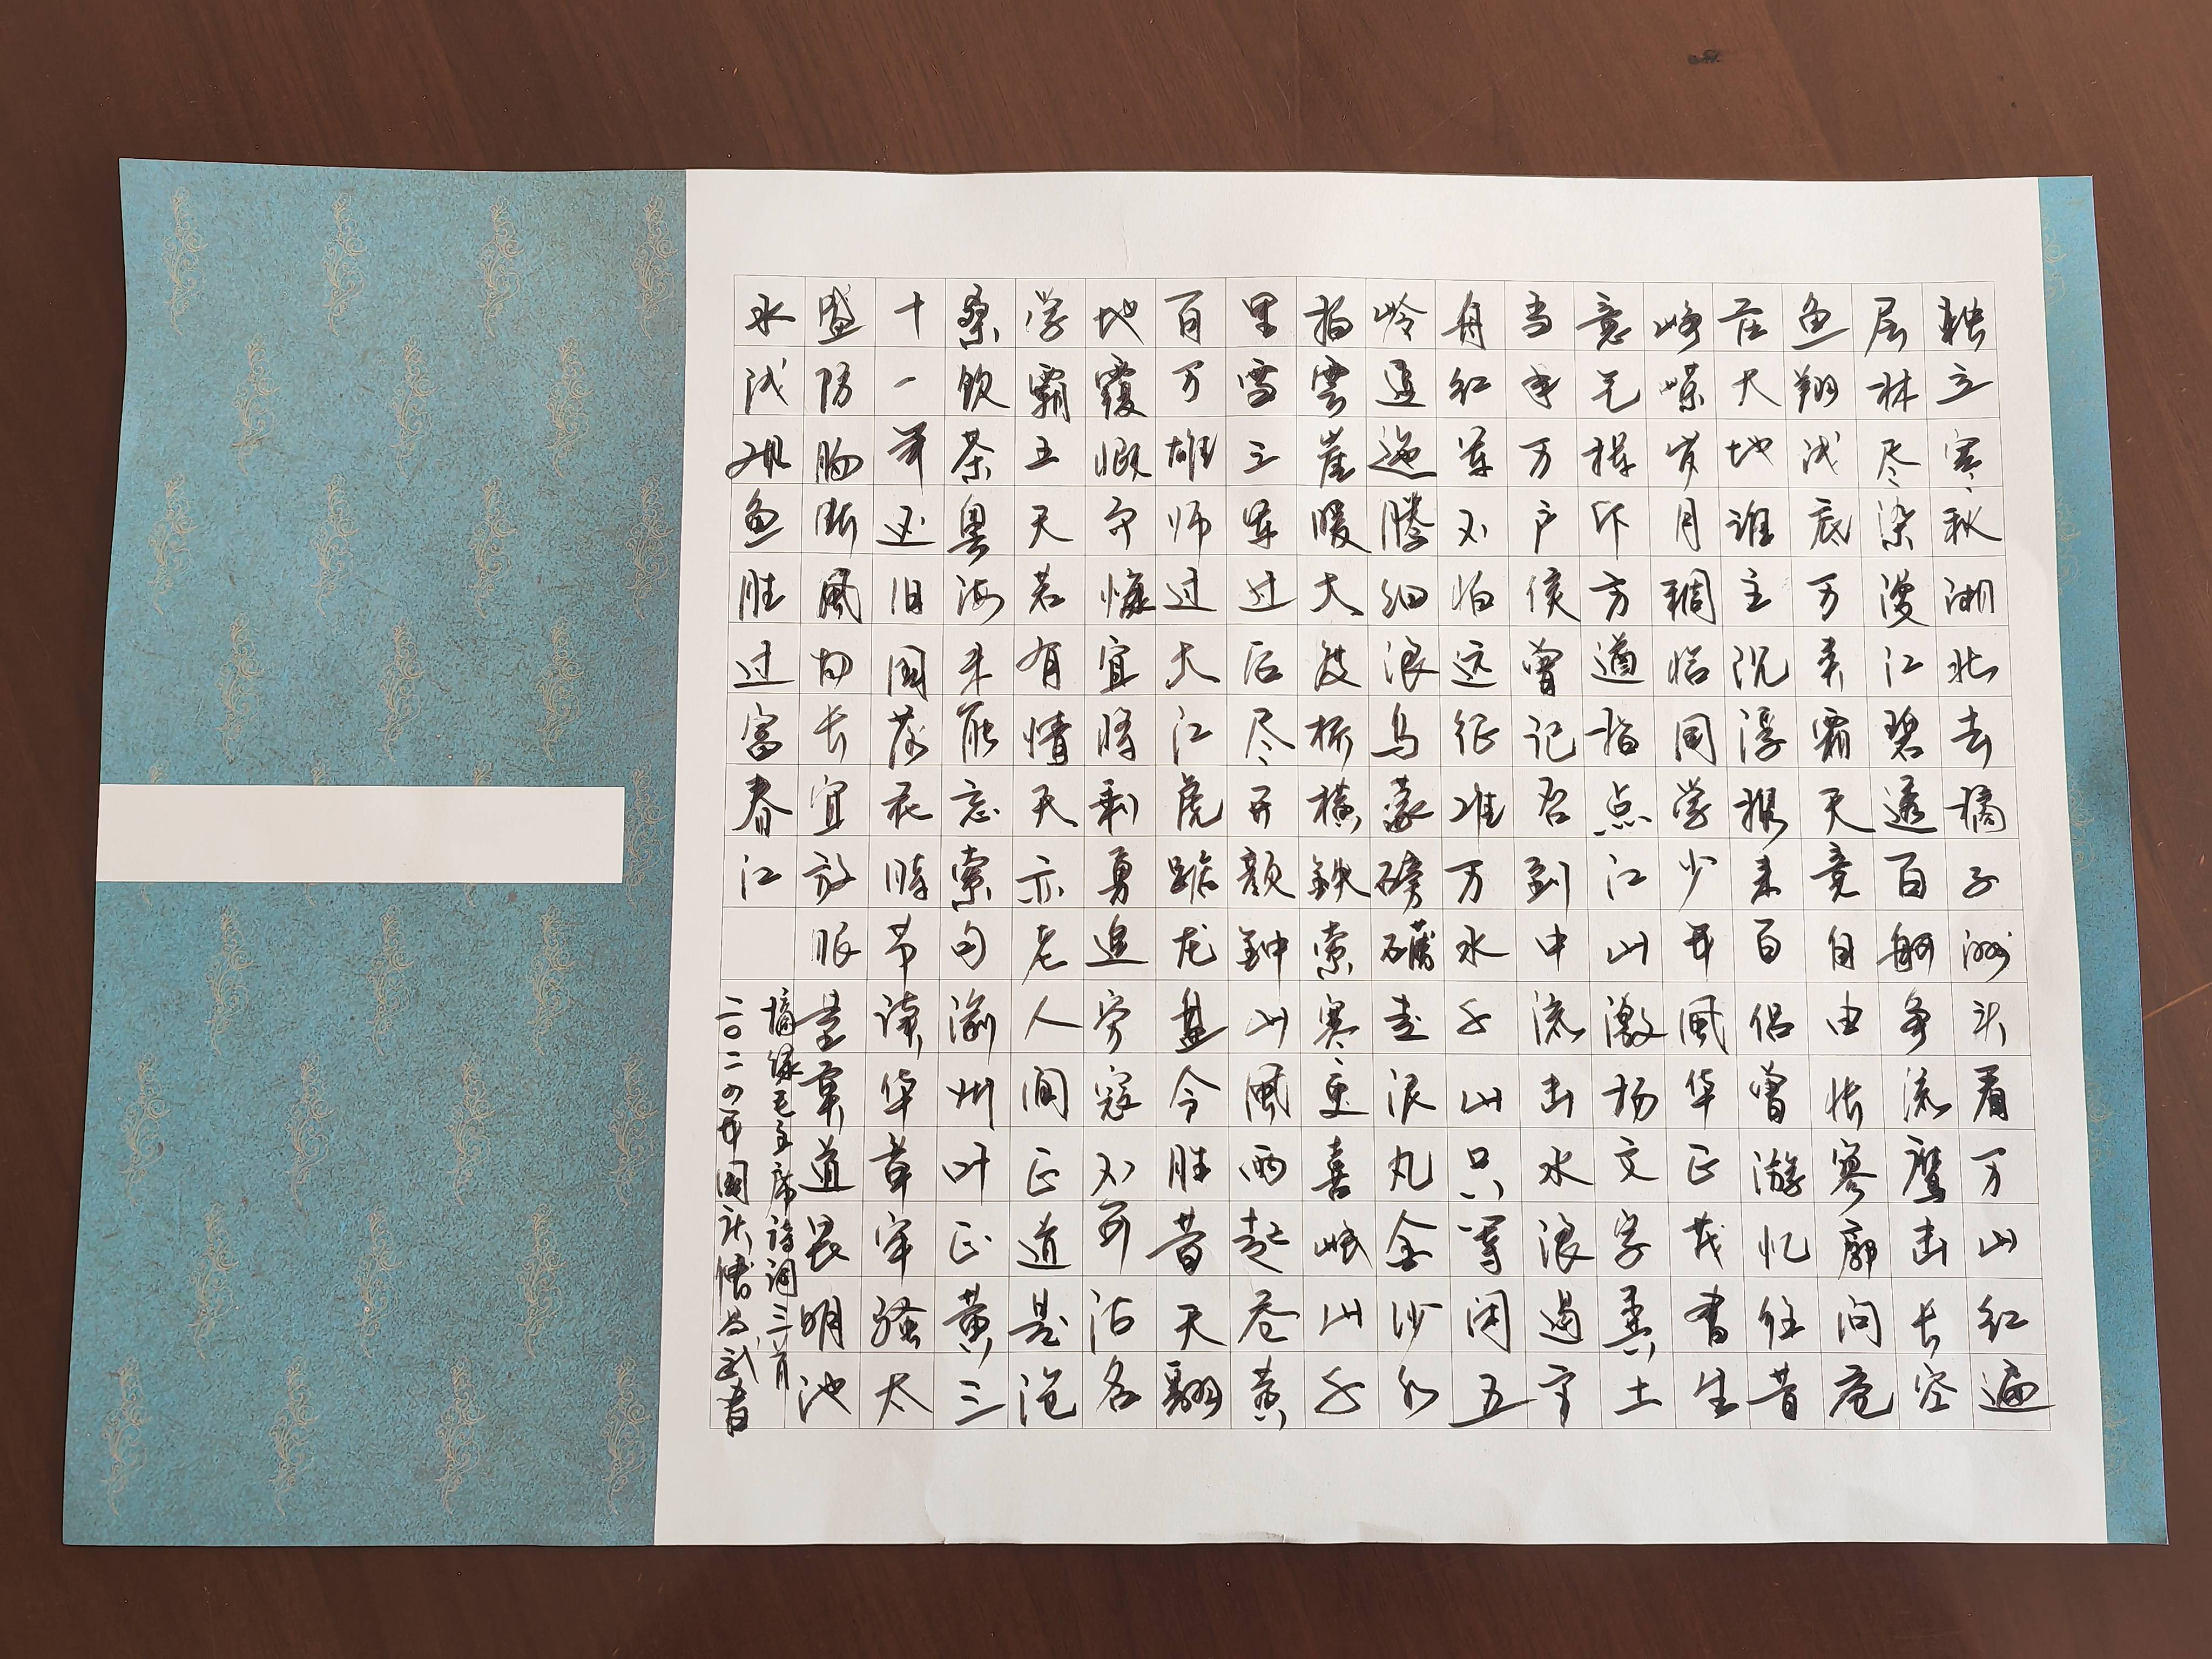 独立寒秋湘北去橘子洲头看万山红遍
层林尽染漫江碧透百舸争流鹰击长空
鱼翔浅底万类霜天竞自由怅寥廓问苍
茫大地谁主沉浮携来百侣曾游忆往昔
峥嵘岁月稠恰同学少年风华正茂书生
意气挥斥方遒指点江山激扬文字粪土
当年万户侯曾记否到中流击水浪遏飞
舟红军不怕远征难万水千山只等闲五
岭逶迤腾细浪乌蒙磅礴走泥丸金沙水
拍雲崖暖大渡桥横鉄索寒更喜岷山千
里雪三军过后尽开颜鈡山风雨起苍黄
百万雄师过大江虎踞龙盘今胜昔天翻
地覆慨而慷宜将剩勇追穷寇不可沽名
学霸王天若有情天亦老人间正道是沧
桑饮茶粤海未能忘索句渝州叶正黄三
十一年还旧国落花时节读华章牢骚太
盛防肠断风物长宜放眼量莫道昆明池
水浅观鱼胜过富春江
摘录毛主席诗词三首
二〇二四年国庆武書